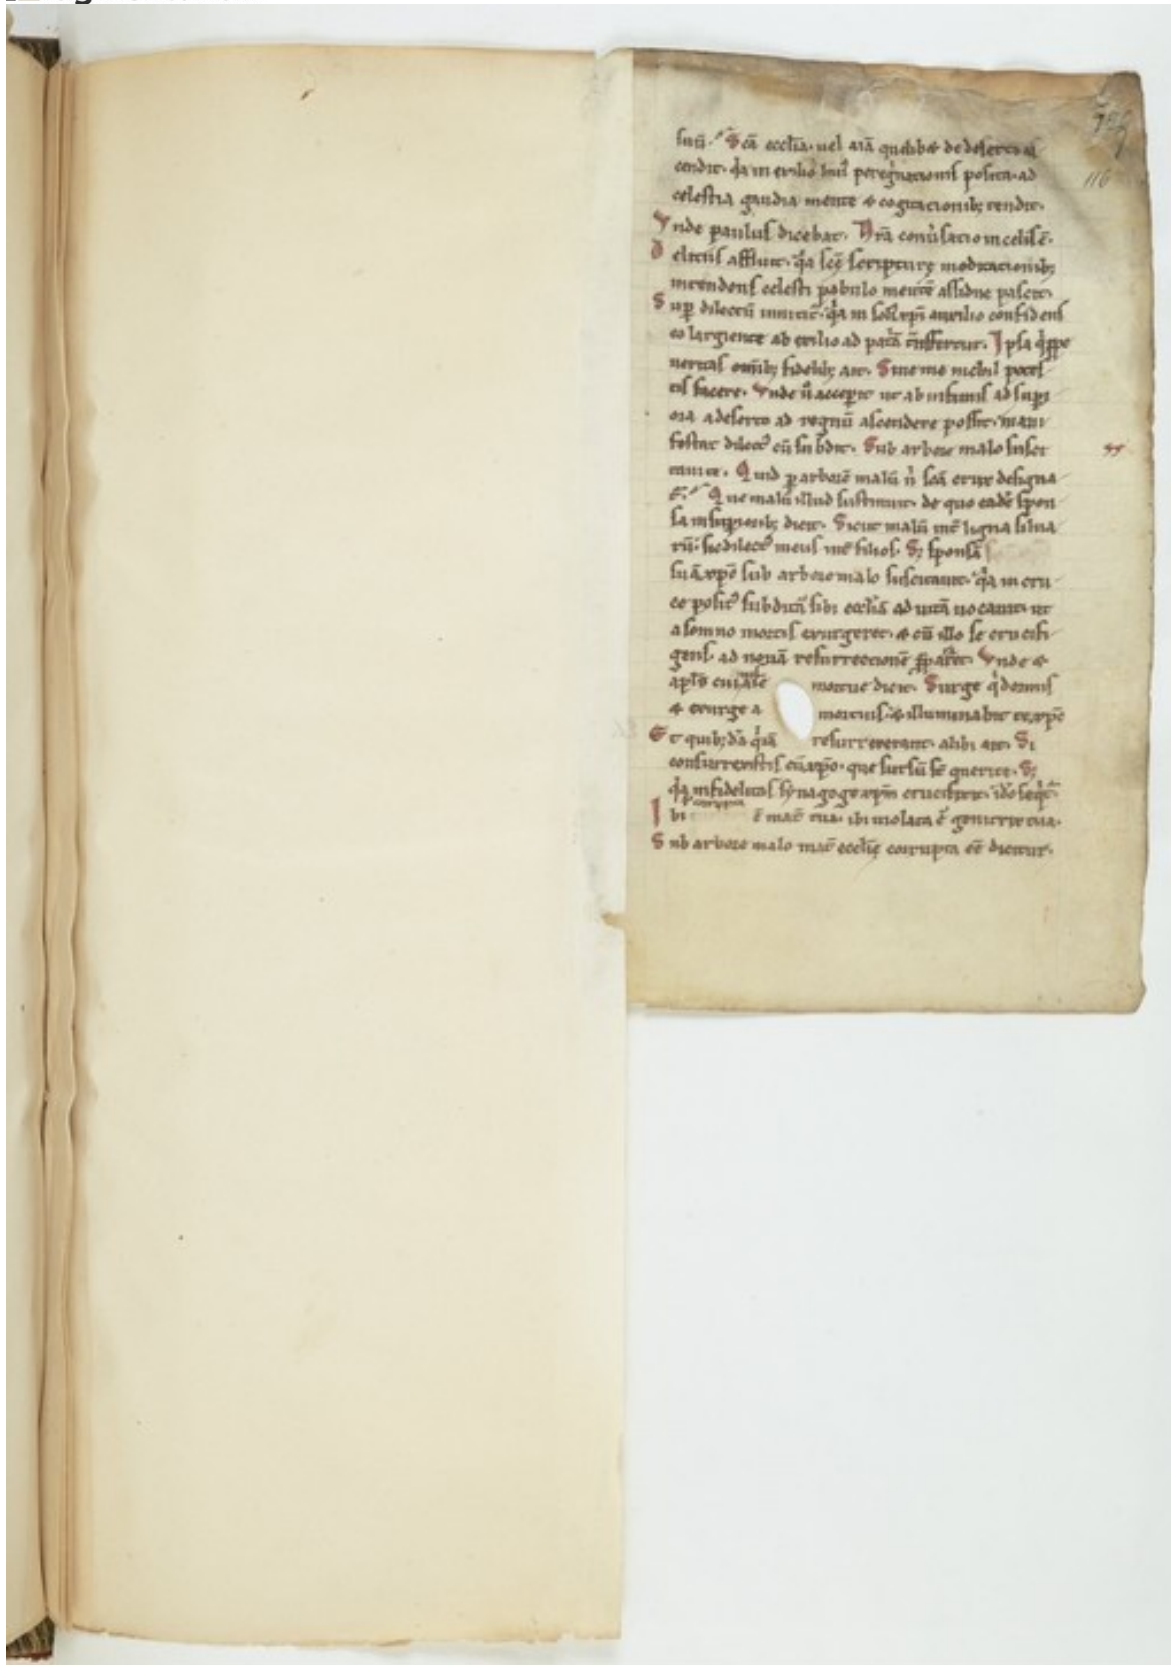 suũ. Scã ecclia. uel aĩa quelibet de deserto as
cendit. q̇a in exilio huiꝰ peregͥnationis posita. ad
celestia gaudia mente & cogitacionibꝫ tendit.
Vnde paulus dicebat. Nr̃a conũsacio in celis ẽ.
Deliciis affluit. q̇a scẽ scripturę meditacionibꝫ
intendens celesti pabulo mentẽ assidue pascit.
Suꝑ dilectũ innitit̃. q̇a in soliꝰ xp̃i auxilio confidens
eo largiente ab exilio ad patͥã tͣnsfertur. Ipsa q̇ppe
ueritas omĩbꝫ fidelibꝫ ait. Sine me nichil potes
tis facere. Vnde ũ acceperit ut ab infimis ad supi
ora a deserto ad regnũ ascendere possit. mani
festat dilectꝰ cũ subdit. Sub arbore malo susci
taui te. Quid ꝑ arborẽ malũ ñ scã crux designa
t̃. Que malũ illud sustinuit. de quo eadẽ spon
sa in supioribꝫ dicit. Sicut malũ int̃ ligna silua
rũ. sic dilectꝰ meus int̃ filios. Sꝫ sponsã
suã xp̃c sub arbore malo suscitauit. q̇a in cru
ce positꝰ subditã sibi eccliã ad uitã uocauit. ut
a somno mortis exurgeret. & cũ illo se crucifi
gens. ad nouã resurrectionẽ ꝓparet. Vnde &
apl̃s cuiͣ aĩe mortue dicit. Surge q̇ dormis
& exurge a mortuis. & illuminabit te xp̃c
Et quibꝫdã q̇ iã resurrexerant. alibi ait. Si
consurrexistis cũ xp̃o. que sursũ st̃ querite. Sꝫ
q̇a infidelitas synagoge xp̃m crucifixit. idõ seq̇t̃.
Ibi corrupta ẽ mat̃ tua. ibi uiolata ẽ genitrix tua.
Sub arbore malo mat̃ ecclię corrupta eẽ dicitur.
116